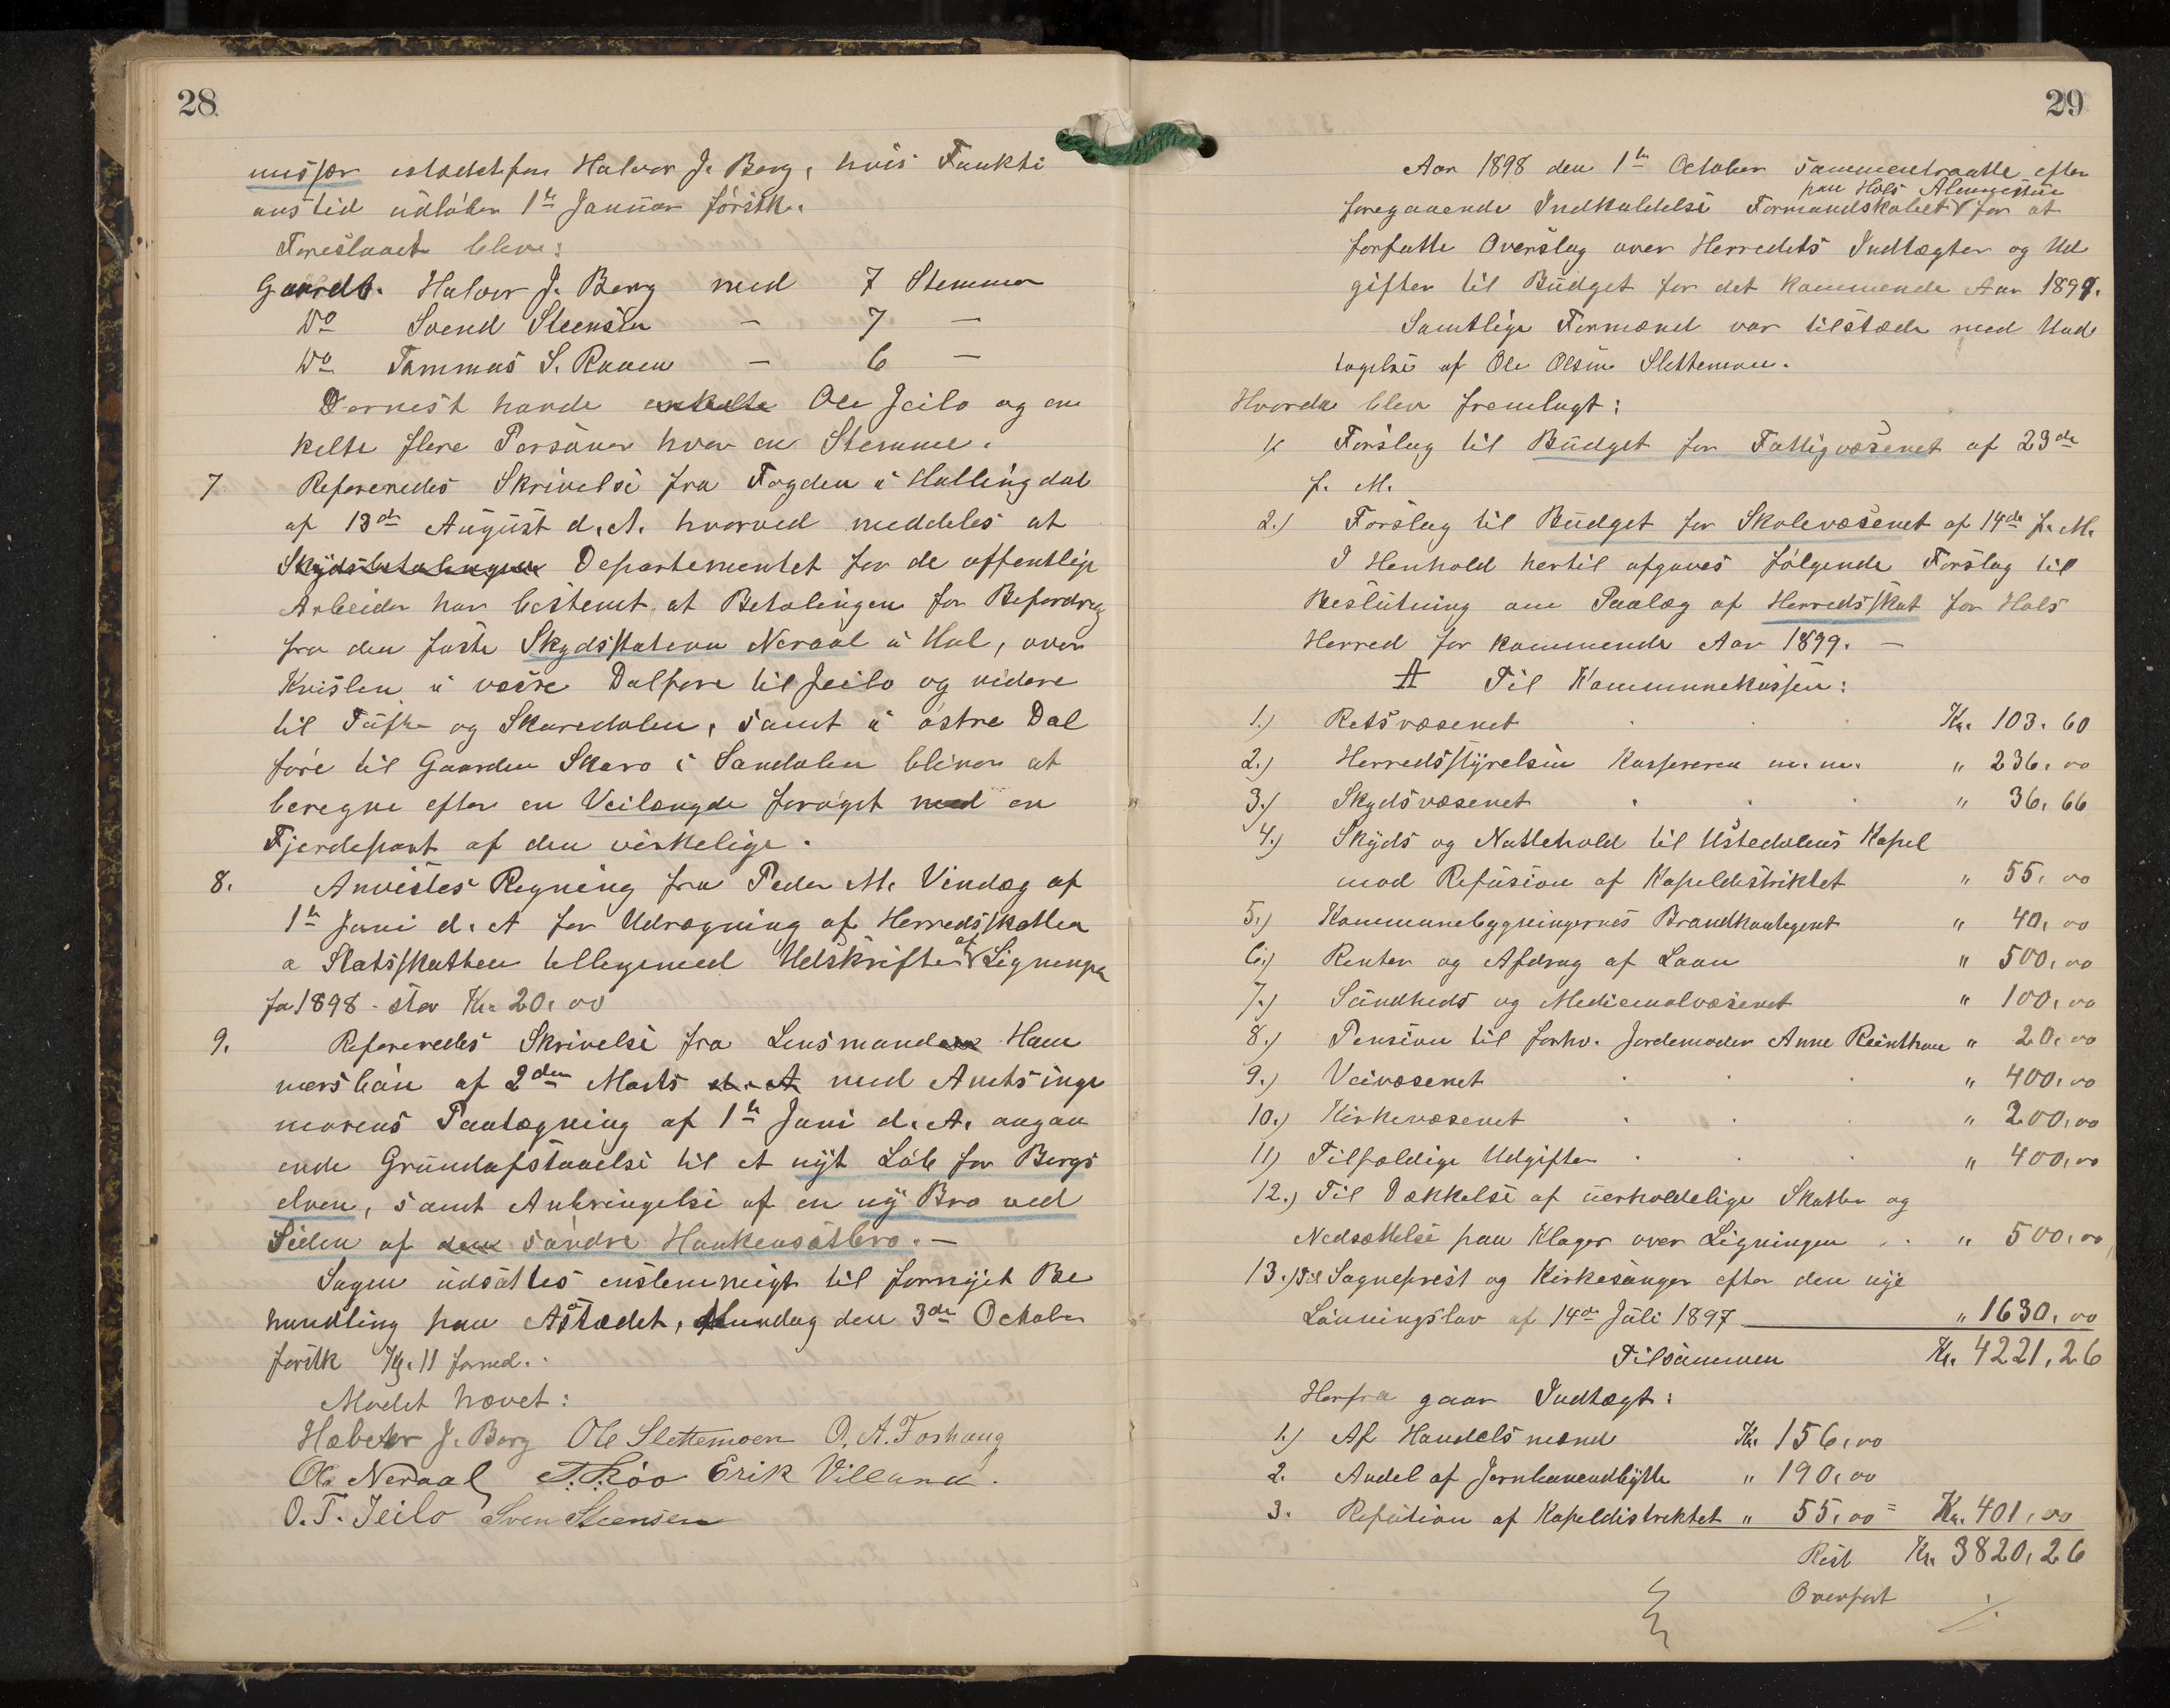 28
missær istedetfor Halvor J. Berg, hvis Funkti
onstid udløber 1ste Januar førstk.
Foreslaaet bleve:
Gaardb. Halvor J. Berg med 7 Stemmer
Do Svend Steensen — 7 —
Do Tommas S. Raaen — 6 —
Dernest havde enkelte Ole Jeilo og en
kelte flere Personer hver en Stemme.
7 Refereredes Skrivelse fra Fogden i Hallingdal
af 13de August d. A. hvorved meddeles at
Skydsbetalingen Departementet for de offentlige
Arbeider har bestemt, at Betalingen for Befordring
fra den faste Skydsstation Neraal i Hol, over
Kvislen i vestre Dalføre til Jeilo og videre
til Tufte og Skuredalen, samt i østre Dal
føre til Gaarden Skaro i Sandalen bliver at
beregne efter en Veilængde forøget med en
Fjerdepart af den virkelige.
8. Anvistes Regning fra Peder M. Vindæg af
1ste Juni d. A for Udregning af Herredsskatten
a Statsskatten tilligemed Udskrifter af Ligningen
for 1898 - stor Kr. 20,00
9. Refereredes Skrivelse fra Lensmanden Ham
mersbøn af 2den Marts d. A med Amtsinge
niørens Paategning af 1ste Juni d. A. angaa
ende Grundafstaaelse til et nyt Løb for Bergs
elven, samt Anbringelse af en ny Bro ved
Siden af den søndre Hankensætbro. —
Sagen udsattes enstemmigt til fornyet Be
handling paa Aastædet, Mandag den 3de October
førstk Kl. 11 formd.
Mødet hævet:
Halvor J. Berg Ole Slettemoen O. A. Forhaug
Ole Neraal T. Roo Erik Villand.
O. T. Jeilo Sven Steensen
29
Aar 1898 den 1ste October sammentraatte efter
paa Hols Almenstue
foregaaende Indkaldelse Formandskabet for at
forfatte Overslag over Herredets Indtægter og Ud
gifter til Budget for det kommende Aar 1899.
Samtlige Formænd var tilstæde med Und
tagelse af Ole Olsen Slettemoen.
Hvorda blev fremlagt:
1. Forslag til Budget for Fattigvæsenet af 23de
f. M.
2.) Forslag til Budget for Skolevæsenet af 14de f. M.
I Henhold hertil afgaves følgende Forslag til
Beslutning om Paalæg af Herredsskat for Hols
Herred for kommende Aar 1899. —
A Til Kommunekassen:
1.) Retsvæsenet Kr. 103. 60
2.) Herredsstyrelsen Kassereren m. m. " 236,00
3.) Skydsvæsenet " 36,66
4.) Skyds og Nattehold til Ustedalens Kapel
mod Refusion af Kapeldistriktet " 55,00
5.) Kommunebygningernes Brandkontigent " 40,00
6.) Renter og Afdrag af Laan " 500,00
7.) Sundheds og Medicinalvæsenet " 100,00
8.) Pension til forhv. Jordemoder Anne Reinthon " 20,00
9.) Veivæsenet " 400,00
10.) Kirkevæsenet " 200,00
11) Tilfældige Udgifter " 400,00
12.) Til Dækkelse af uerholdelige Skatter og
Nedsættelse paa Klager over Ligningen " 500,00
13.) Til Sogneprest og Kirkesanger efter den nye
Lønningslov af 14de Juli 1897 " 1630,00
Tilsammen Kr. 4221,26
Herfra gaar Indtægt:
1.) Af Handelsmænd Kr. 156,00
2. Andel af Jernbaneudbytte " 190,00
3. Refution af Kapeldistriktet " 55,00 = Kr. 401,00
Rest Kr. 3820,26
Overført ./.